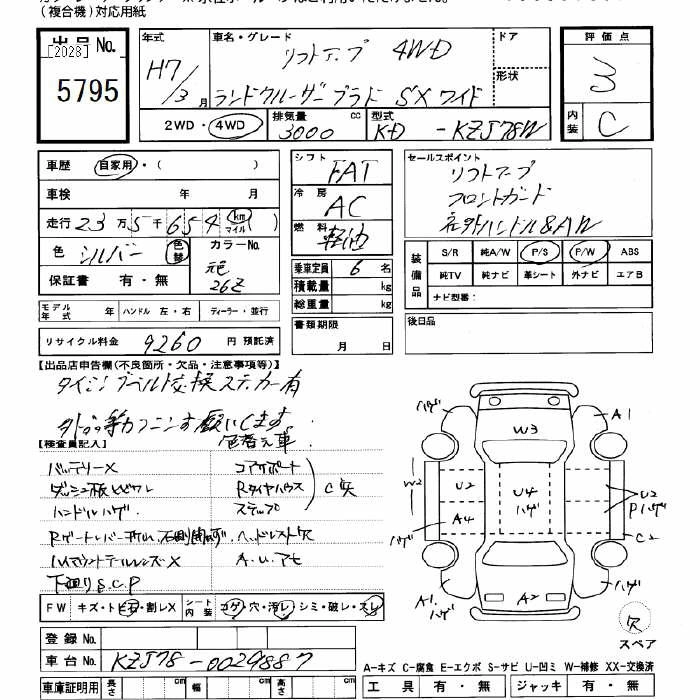 (複合機)対応用紙
出品No.
[2028]
5795
年式
H7/3月
車名・グレード
リフトアップ 4WD
ランドクルーザープラド SXワイド
ドア
形状
2WD・4WD
排気量
3000 cc
型式
KD-KZJ78W
評価点
3
内装
C
車歴 自家用・( )
車検 年 月
走行 23万5千654 km マイル ( )
色 シルバー 色替
カラーNo.
元色
26Z
保証書 有・無
モデル年式 年 ハンドル 左・右 ディーラー・並行
リサイクル料金 9260円 預託済
シフト
FAT
冷房
AC
燃料
軽油
乗車定員 6名
積載量 kg
総重量 kg
書類期限
月 日
セールスポイント
リフトアップ
フロントガード
社外ハンドル&AW
装備品
S/R 純A/W P/S P/W ABS
純TV 純ナビ 革シート 外ナビ エアB
ナビ型番:
後日品
【出品店申告欄(不良箇所・欠品・注意事項等)】
タイミングベルト交換ステッカー有
色替え車.
【検査員記入】
バッテリーX
コアサポート
ダッシュ板ヒビワレ
Rタイヤハウス
C欠
ハンドルハゲ.
ステップ
ヘッドレスト欠
ハイマウントテールレンズX
A.U.アセ
下廻りS.C.P
FW キズ・トビ石・割レX
シート内装 コゲ・穴・汚レ・シミ・破レ・スレ
登録No.
車台No. KZJ78-0029887
車庫証明用 長さ cm 幅 cm 高さ cm
ハゲ
A1
W3
W2
U2
U4
ハゲ
U2
Pハゲ
A4
ハゲ
C2
A1.
ハゲ
A2
ハゲ
欠
スペア
A-キズ C-腐食 E-エクボ S-サビ U-凹ミ W-補修 XX-交換済
工具 有・無 ジャッキ 有・無